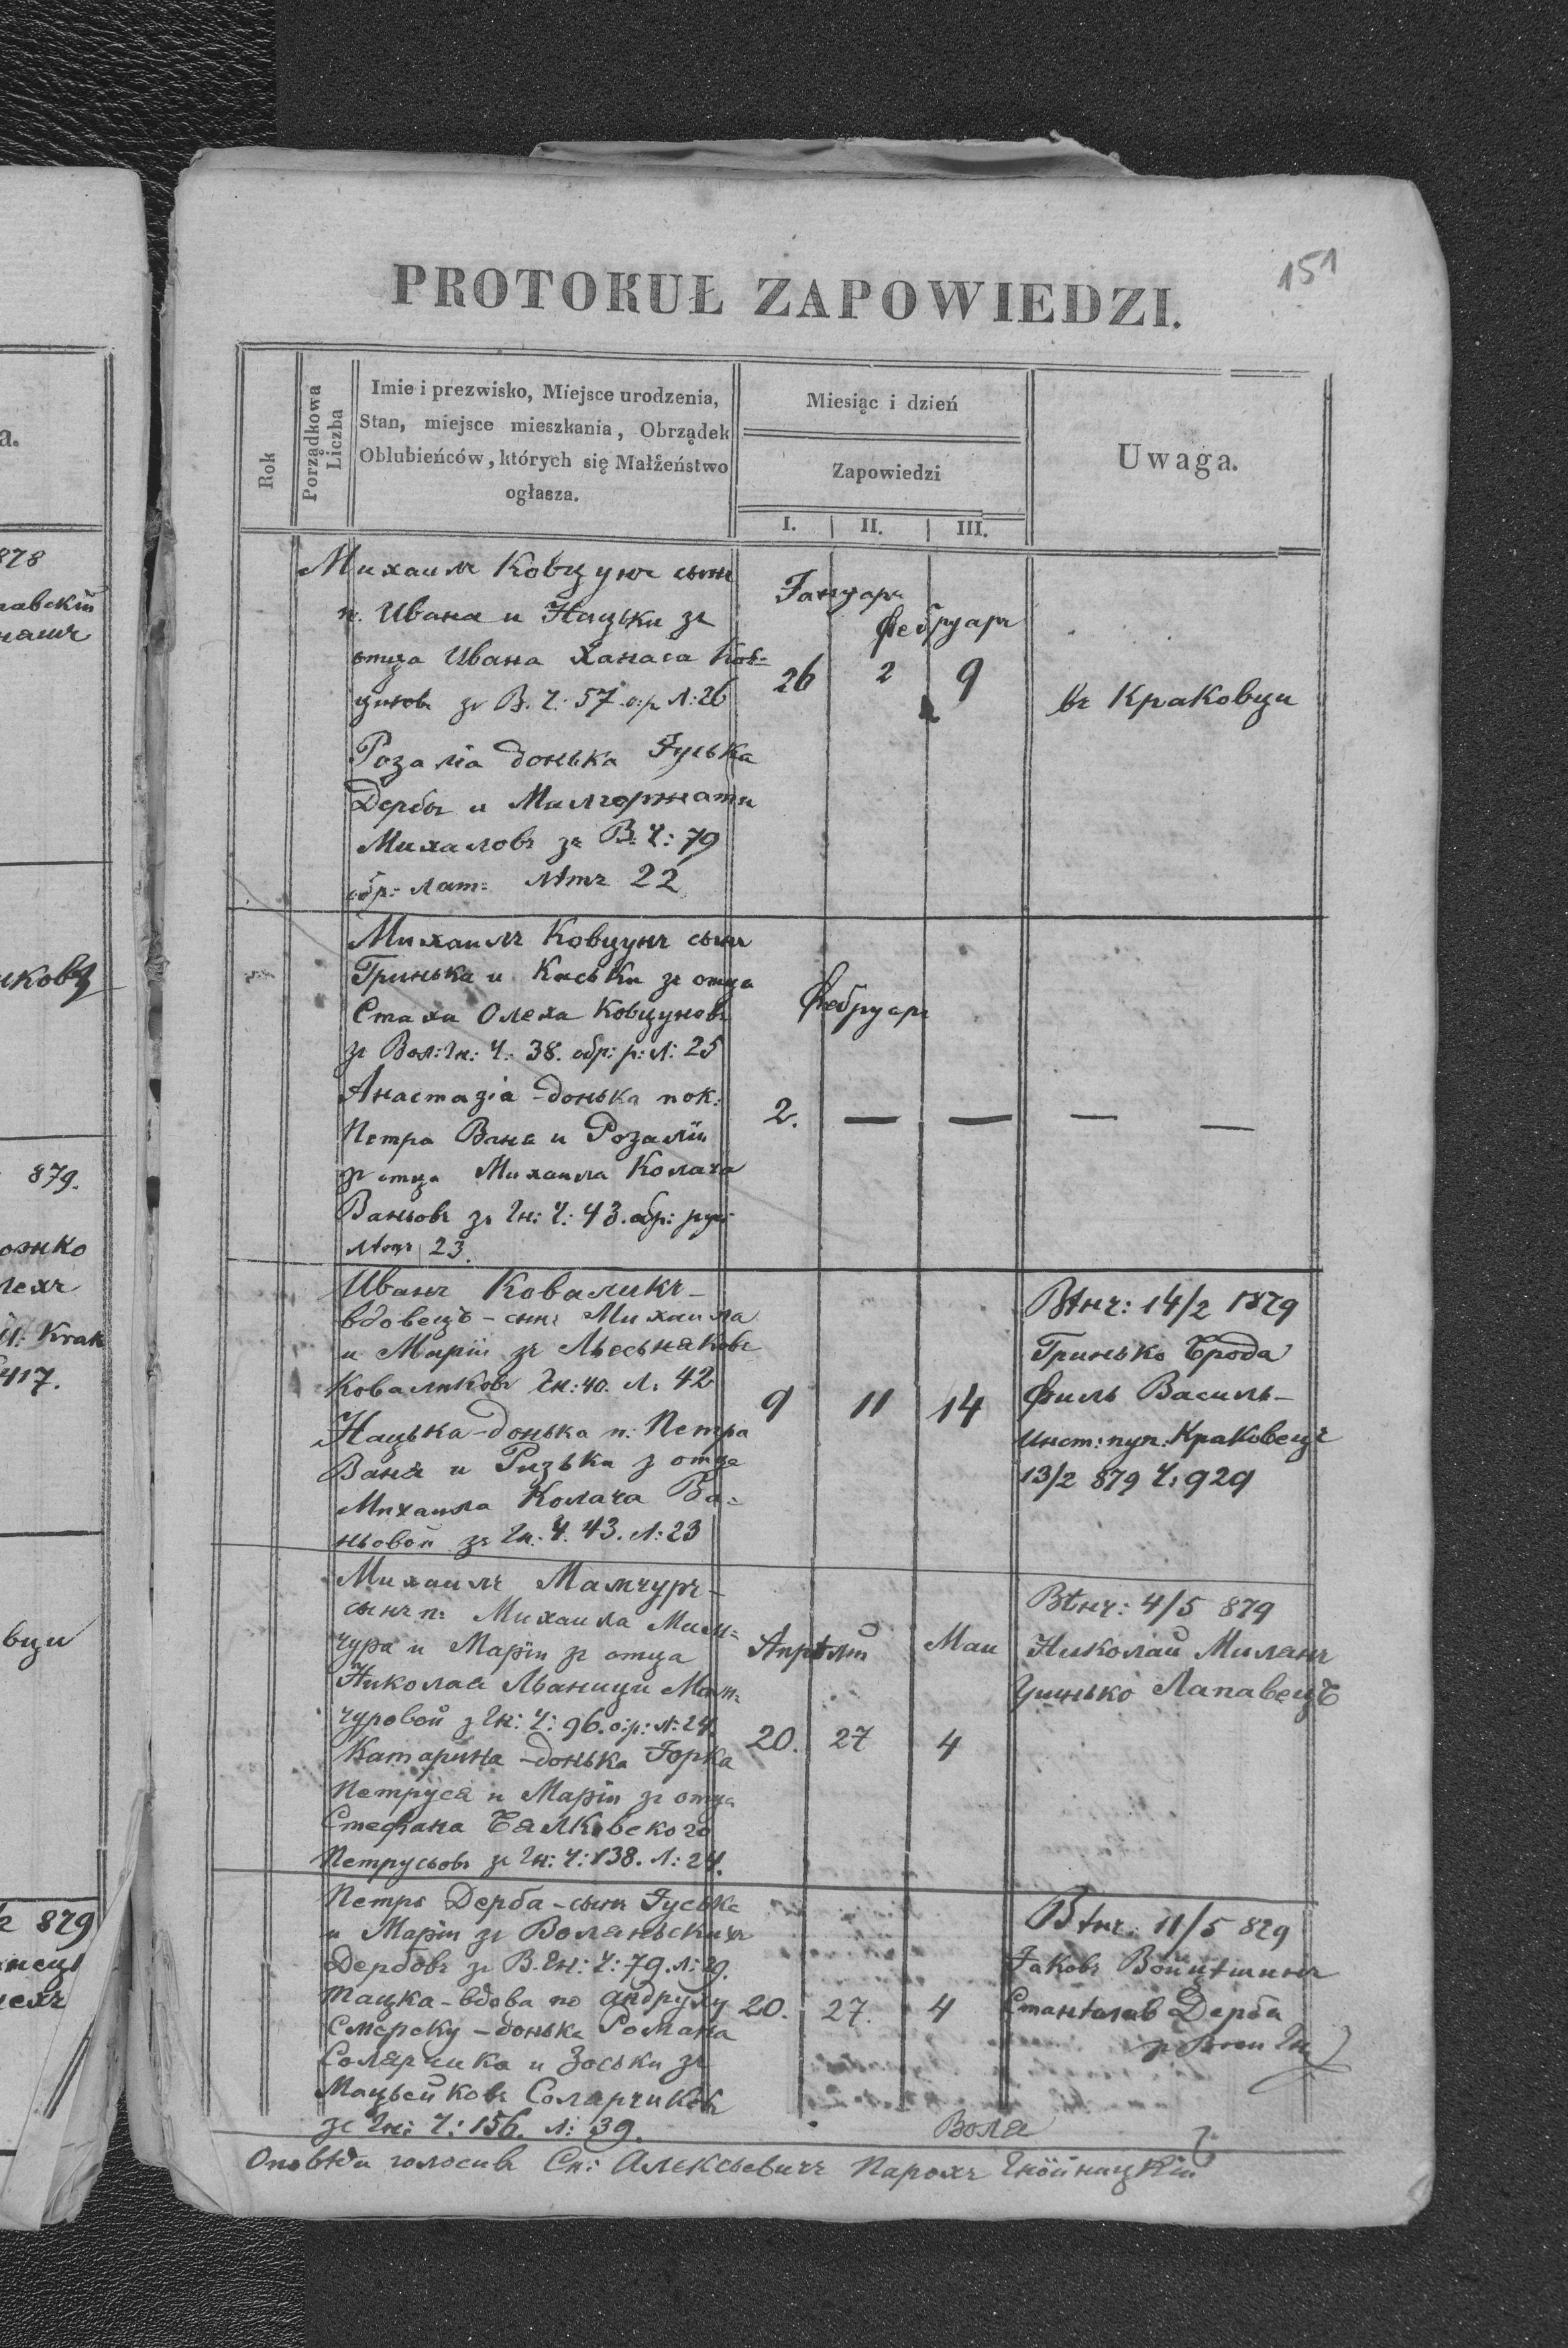 878
879.
ожко
Krak
417.
вци
879
151
PROTOKUŁ ZAPOWIEDZI.
Rok
Porządkowa Liczba
Imie i prezwisko, Miejsce urodzenia,
Stan, miejsce mieszkania, Obrządek
Oblubieńców, których się Małżeństwo
ogłasza.
Miesiąc i dzień
Zapowiedzi
I. II. III.
Uwaga.
Михаилъ Ковцунъ сынъ
п. Ивана и Нацьки зъ
отца Ивана Ханаса Ков-
цуновъ зъ В. Ч: 57. о:р Л: 26
Януаръ
Фебруаръ
26 2 9
въ Краковци
Розалiа донька Iуська
Дербы и Малгоржаты
Михаловъ зъ В: Ч: 79
обр: лат: Лѣтъ 22
Михаилъ Ковцунъ сынъ
Гринька и Каськи зъ отца
Стаха Олеха Ковцуновъ
зъ Вол: Гн: Ч: 38. обр: р: Л: 25
Фебруаръ
Анастазiа - донька пок:
Петра Ваня и Розалiи
зъ отца Михаила Колача
Ваньовъ зъ Гн: Ч: 43. обр: рус:
Лѣтъ 23.
2. — — — —
Иванъ Коваликъ -
вдовецъ - сынъ Михаила
и Марiи зъ Лѣсьняковъ
Коваликовъ Гн: 40. Л: 42
Нацька - донька п: Петра
Ваня и Рузьки з отца
Михаила Колача Ва-
ньовой зъ Гн: Ч. 43. Л: 23
9 11 14
Вѣнч: 14/2 1879
Гринько Брода
Филь Василь-
Инст: пуп: Краковецъ
13/2 879 Ч: 929
Михаилъ Мамчуръ -
сынъ п: Михаила Мам-
чура и Марiи зъ отца
Николая Иваници Мам-
чуровой з Гн: Ч: 96. о:р: Л: 24.
Катарина - донька Юрка
Петруся и Марiи зъ отца
Стефана Бялковского
Петрусьовъ зъ Гн: Ч: 138. Л: 24.
Апрѣлiй Маи
20. 27 4
Вѣнч: 4/5 879
Николай Миланъ
Гринько Лапавецъ
Петръ Дерба - сынъ Iуська
и Марiи зъ Воляньскихъ
Дербовъ зъ В. Гн: Ч: 79. Л: 29.
Тацка - вдова по Андруху
Смереку - донька Романа
Солярчика и Зоськи зъ
Мацьейковъ Солярчиковъ
зъ Гн: Ч: 156. Л: 39.
20. 27. 4
Вѣнч: 11/5 879
Яковъ
Станѣславъ Дерба
Воля
Оповѣди голосивъ Сп: Алексѣевичъ Парохъ Гнойницкiй